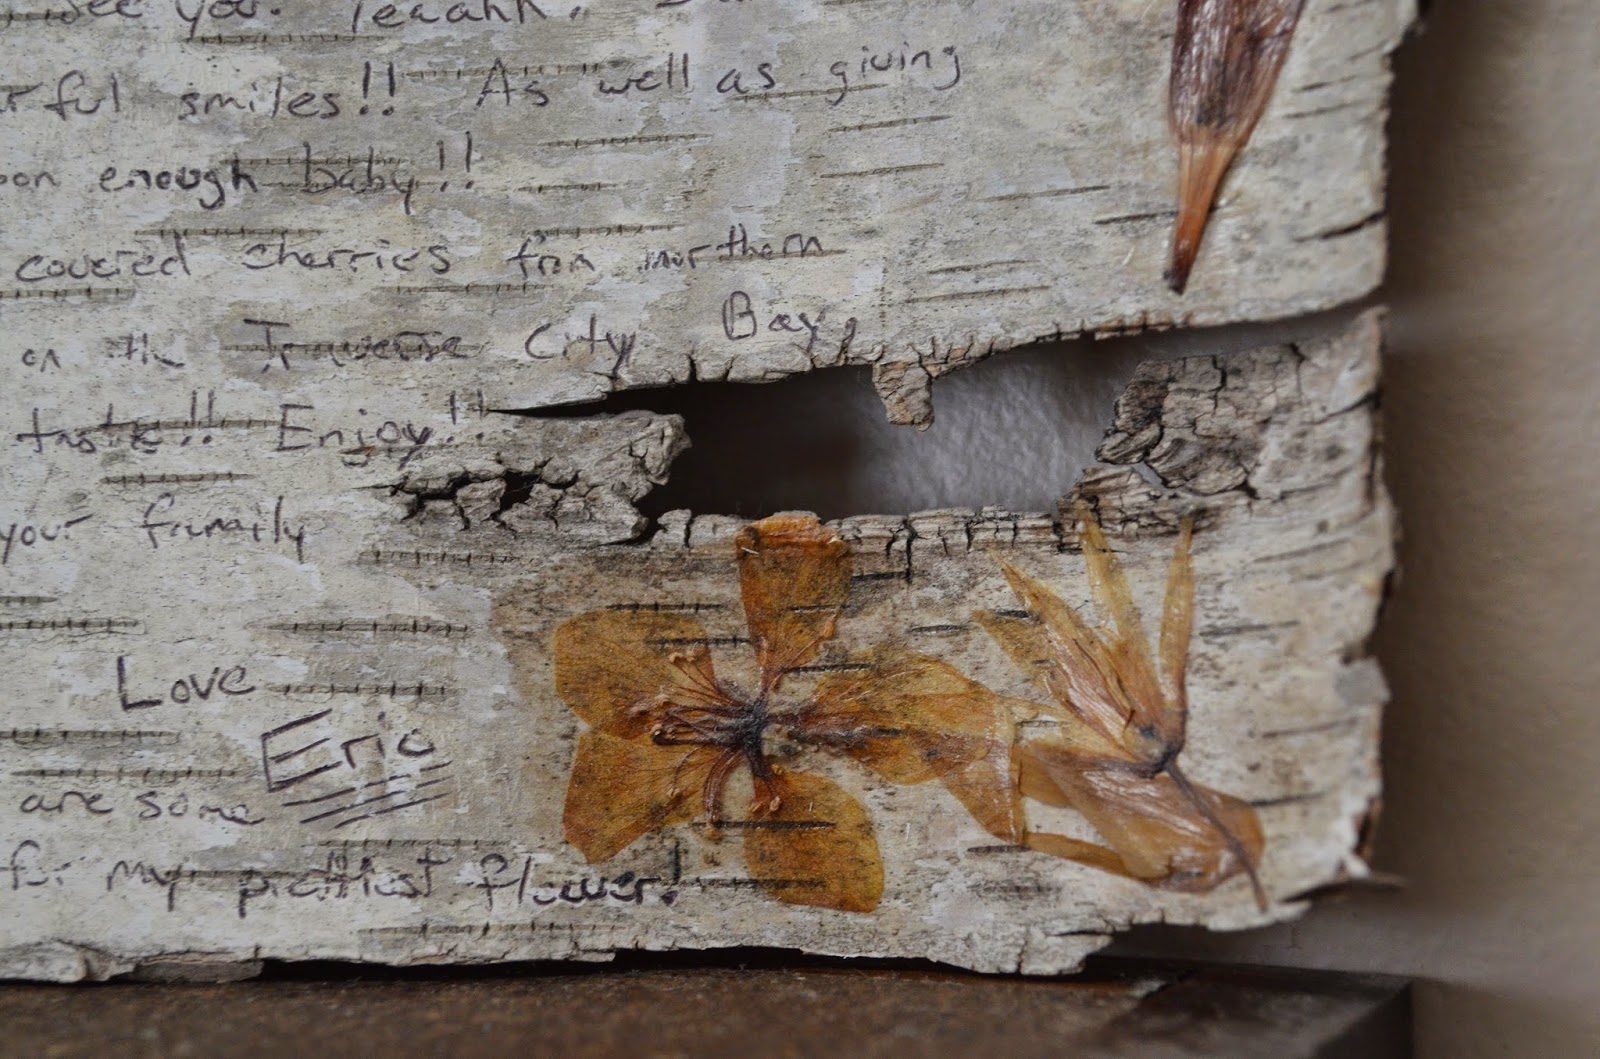 see you. Yeaahh.
rful smiles!! As well as giving
oon enough baby!!
covered cherries from northern
on the Traverse City Bay,
taste!! Enjoy!!
your family
Love
Eric
are some
for my prettiest flower!